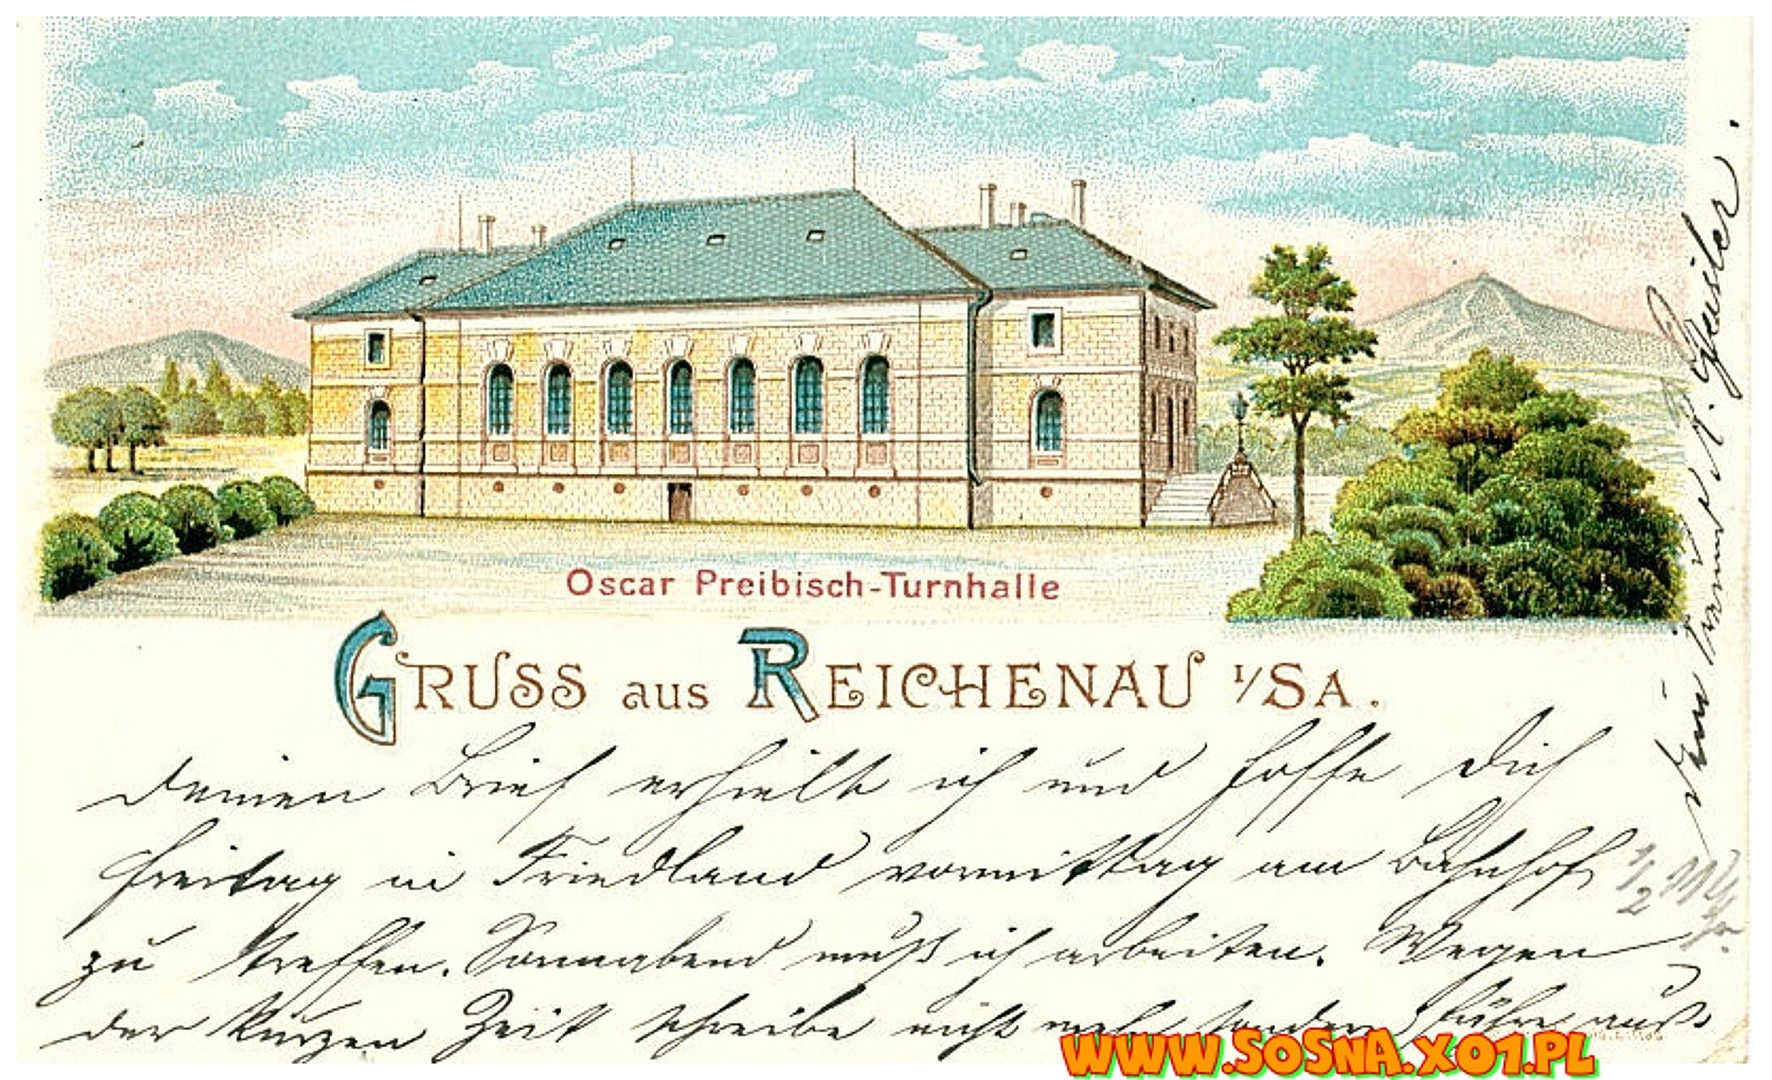 Oscar Preibisch-Turnhalle
GRUSS aus REICHENAU i/SA.
Deinen Brief erhielt ich und hoffe Dich
Freitag in Friedland vormittag am Bahnhof
zu treffen. Sonnabend muß ich arbeiten. Wegen
der kurzen Zeit schreibe nicht
Dein
1/2
WWW.SOSNA.X01.PL